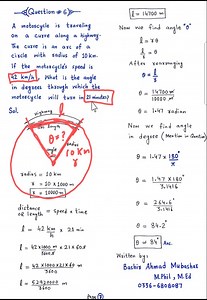 Question # 6
A motorcycle is traveling
on a curve along a highway.
The curve is an arc of a
circle with radius of 10 km.
If the motorcycle's speed is
42 km/h, what is the angle
in degrees through which the
motorcycle will turn in 21 minutes?
Sol.
Highway
l
θ = ?
10 km
r
radius = 10 km
r = 10 × 1000 m
r = 10000 m
distance
or length = speed × time
l = 42 km/h × 21 min
l = 42 × 1000 × 21 × 60 / 3600
l = 42 × 1000 × 21 × 60 / 3600
l = 14700 m
Now we find angle "θ"
l = rθ
l/r = θ
After rearranging
θ = l/r
θ = 14700 m / 10000 m
θ = 1.47 radian
Now we find angle
in degree
θ = 1.47 × 180°/π
θ = 1.47 × 180° / 3.1416
θ = 264.6° / 3.1416
θ = 84.2°
θ = 84° Ans.
Written by:
Bashir Ahmad Mubashar
M.Phil, M.Ed
0336-6808087